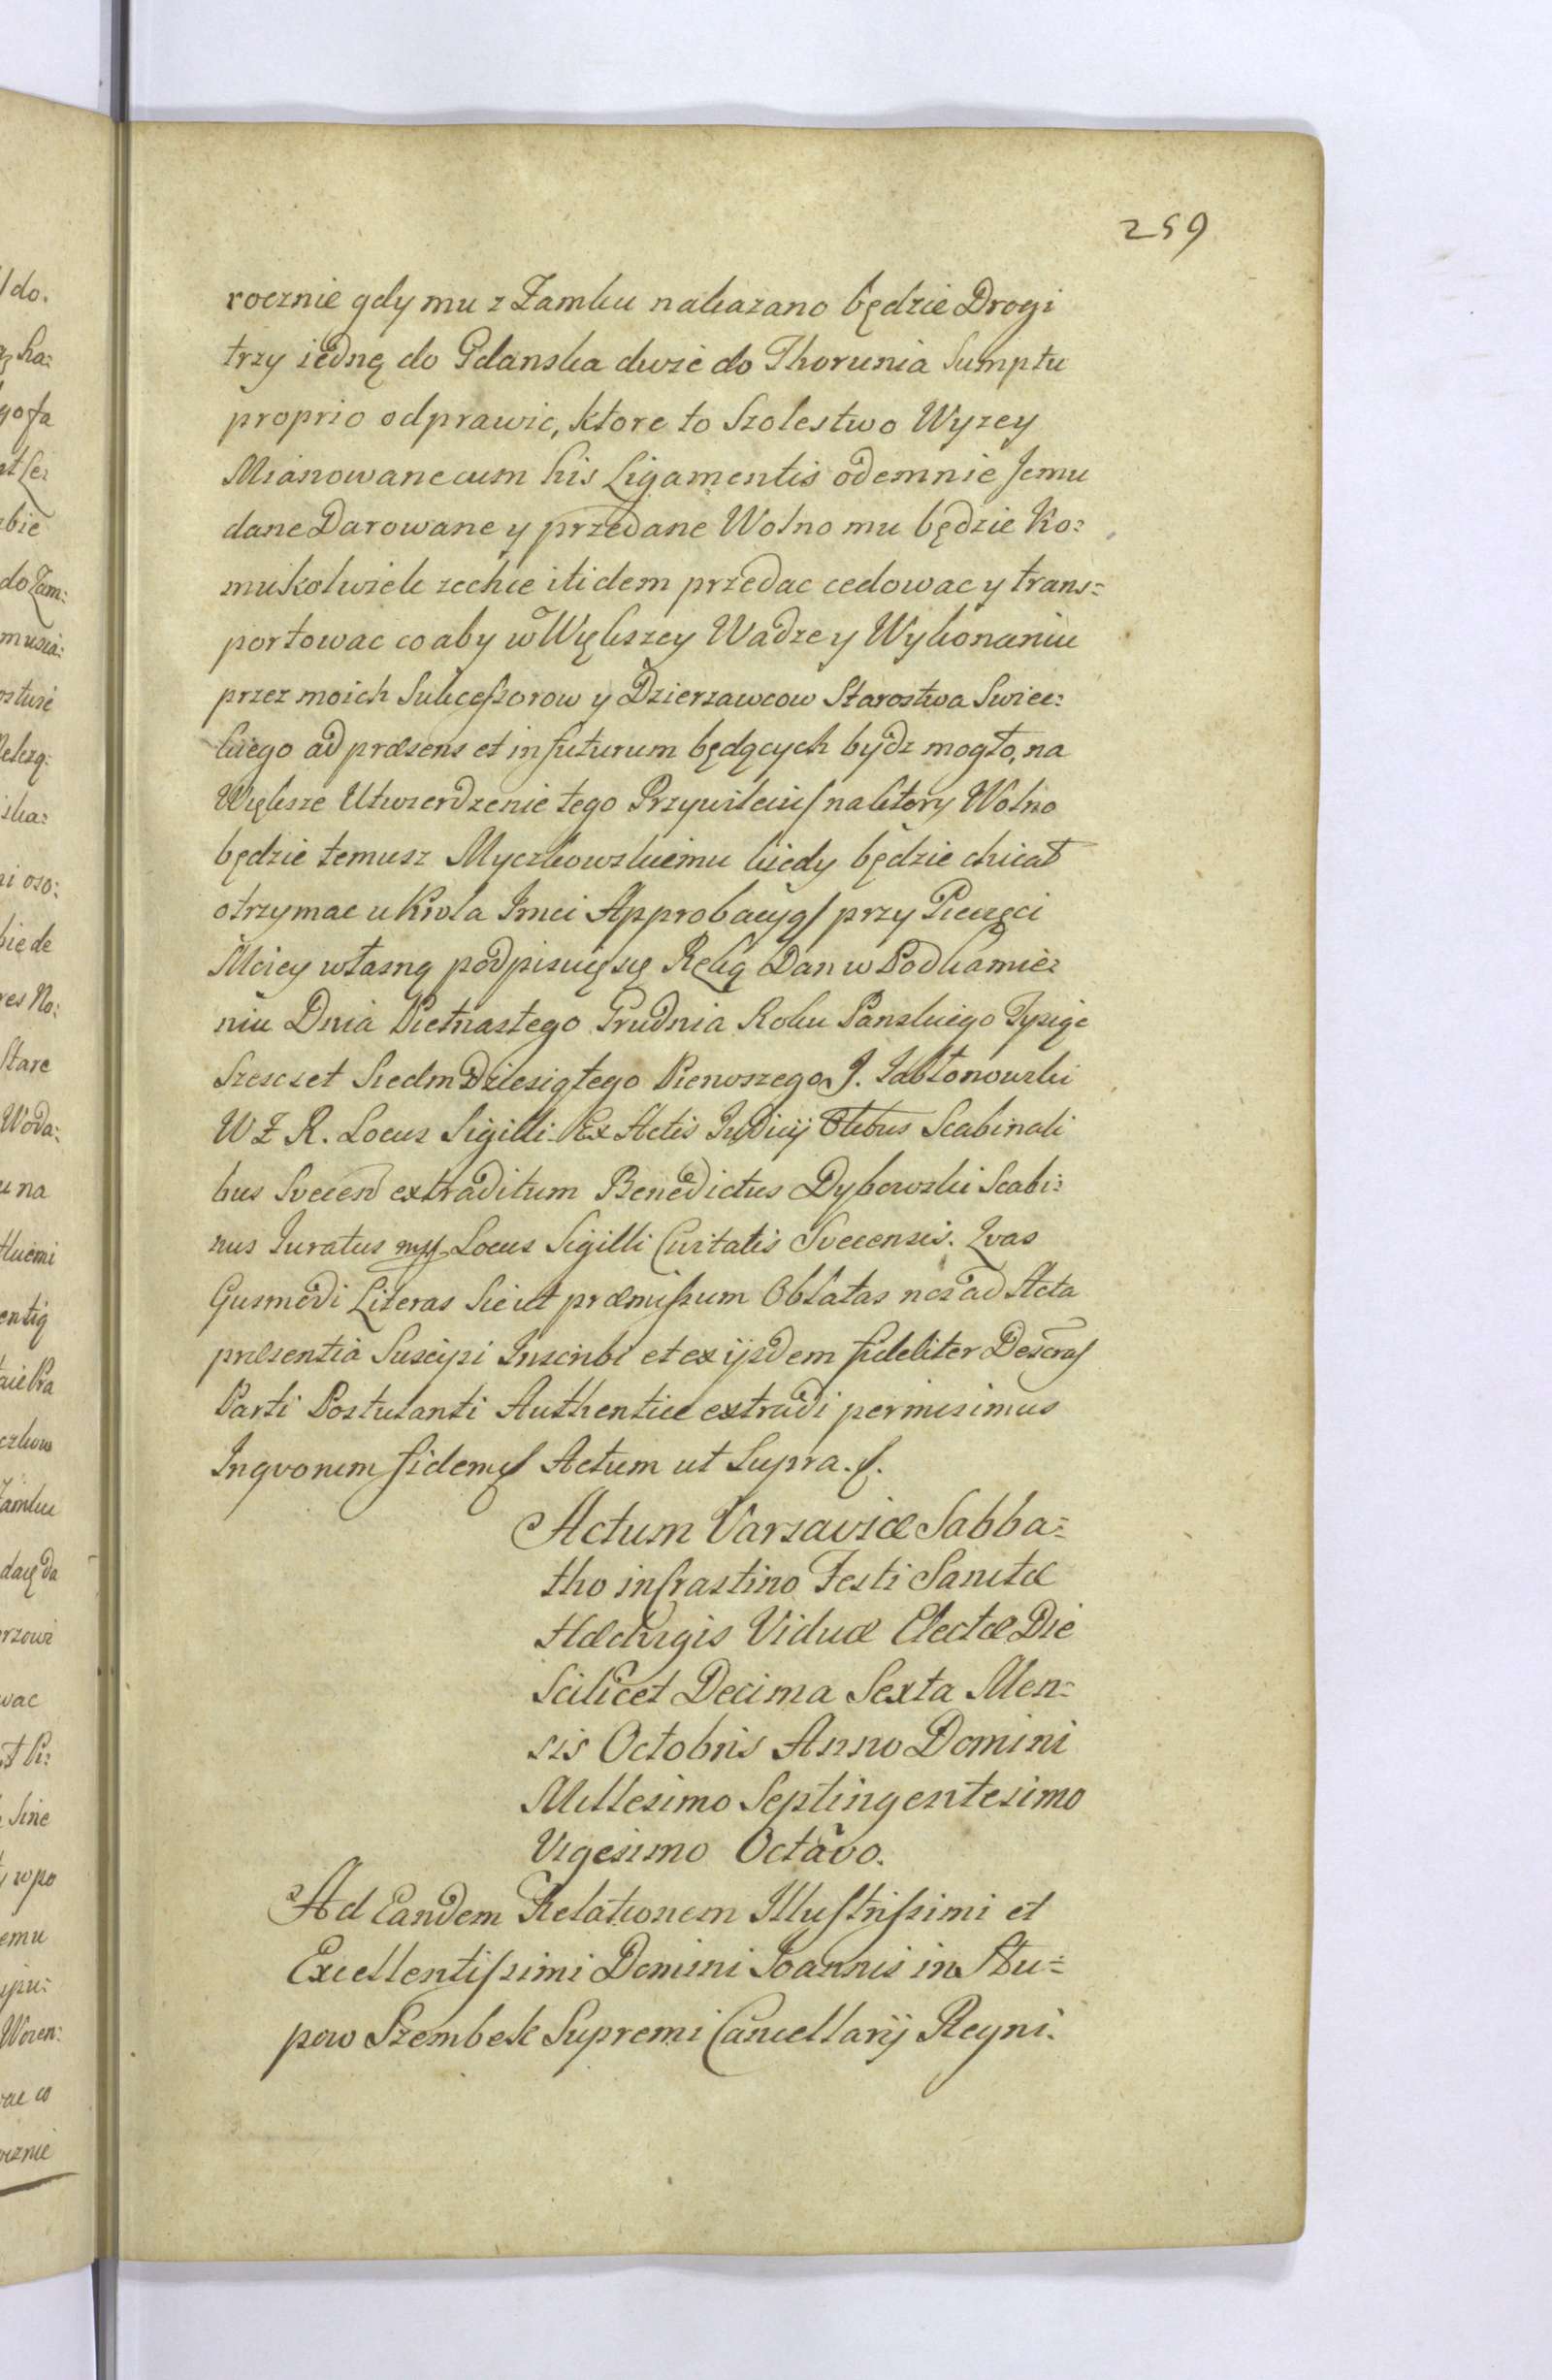 259
rocznie gdy mu z Zamku nakazano będzie Drogi
trzy iednę do Gdanska dwie do Thorunia Sumptu
proprio odprawic, ktore to Szolestwo Wyzey
Mianowane cum his Ligamentis odemnie Jemu
dane Darowane y przedane Wolno mu będzie Ko:
mukolwiek zechce itidem przedac cedowac y trans=
portowac co aby w Większey Wadze y Wykonaniu
przez moich Sukceszorow y Dzierzawcow Starostwa Swiec:
kiego ad præsens et in futurum będących bydz mogło, na
Większe Utwierdzenie tego Przywileiu/ na ktory Wolno
będzie temusz Myczkowskiemu kiedy będzie chicał
otrzymac u Krola Jmci Approbacyą/ przy Pieczęci
Moiey własną podpisuię się Ręką Dan w Podkamie:
niu Dnia Pietnastego Grudnia Roku Panskiego Tysiąc
Szescset Siedm Dziesiątego Pierwszego J. Jabłonowski
W Z R. Locus Sigilli Ex Actis Judicij Scabinali
bus Svecen extraditum Benedictus Dybowski Scabi:
nus Juratus mp Locus Sigilli Civitatis Svecensis. Qvas
Gusmodi Literas Sicut præmissum Oblatas nos ad Acta
præsentia Suscipi Inscribi et ex ijsdem fideliter
Parti Postulanti Authentice extradi permisimus
Inqvorum fidem Actum ut Supra.
Actum Varsaviæ Sabba=
tho in Crastino Festi Sanctæ
Hædvigis Viduæ Electæ Die
Scilicet Decima Sexta Men=
sis Octobris Anno Domini
Millesimo Septingentesimo
Vigesimo Octavo.
Ad Eandem Relationem Illustrissimi et
Excellentissimi Domini Joannis in Stu=
pow Szembek Supremi Cancellarij Regni.